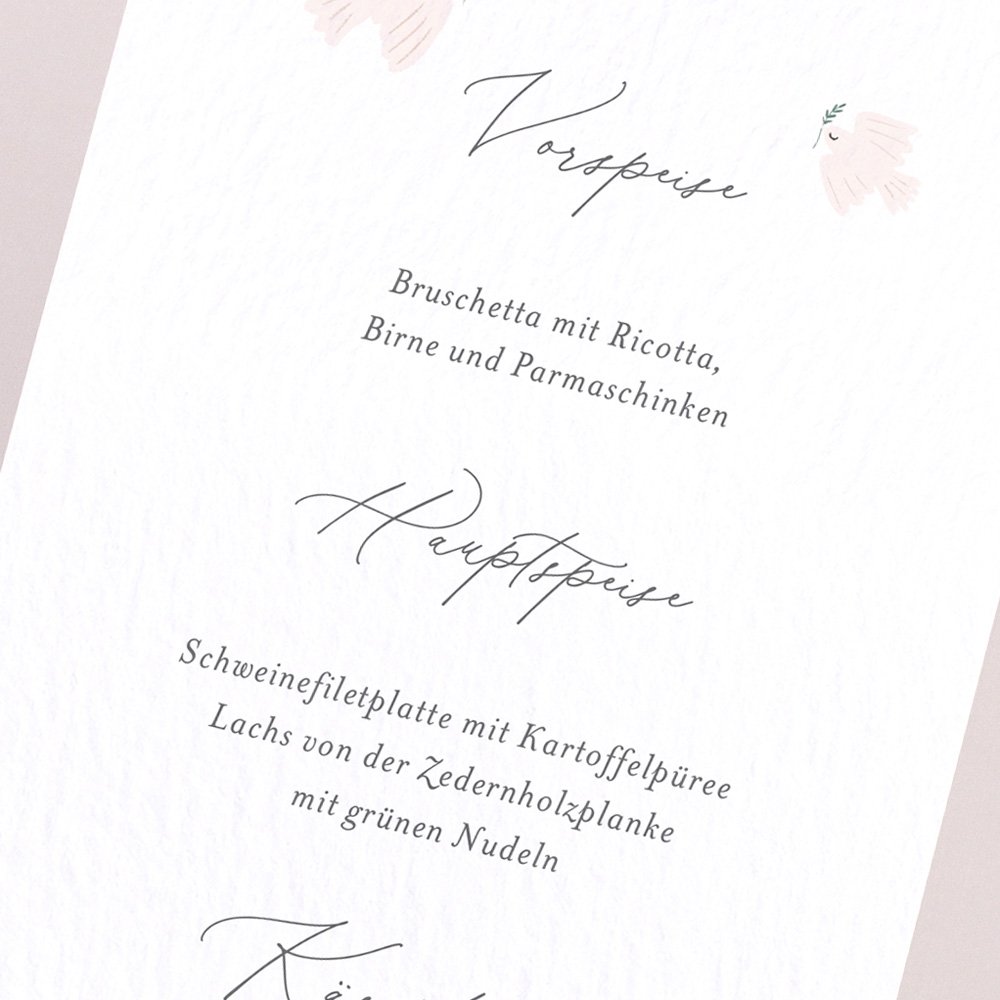 Vorspeise
Bruschetta mit Ricotta,
Birne und Parmaschinken
Hauptspeise
Schweinefiletplatte mit Kartoffelpüree
Lachs von der Zedernholzplanke
mit grünen Nudeln